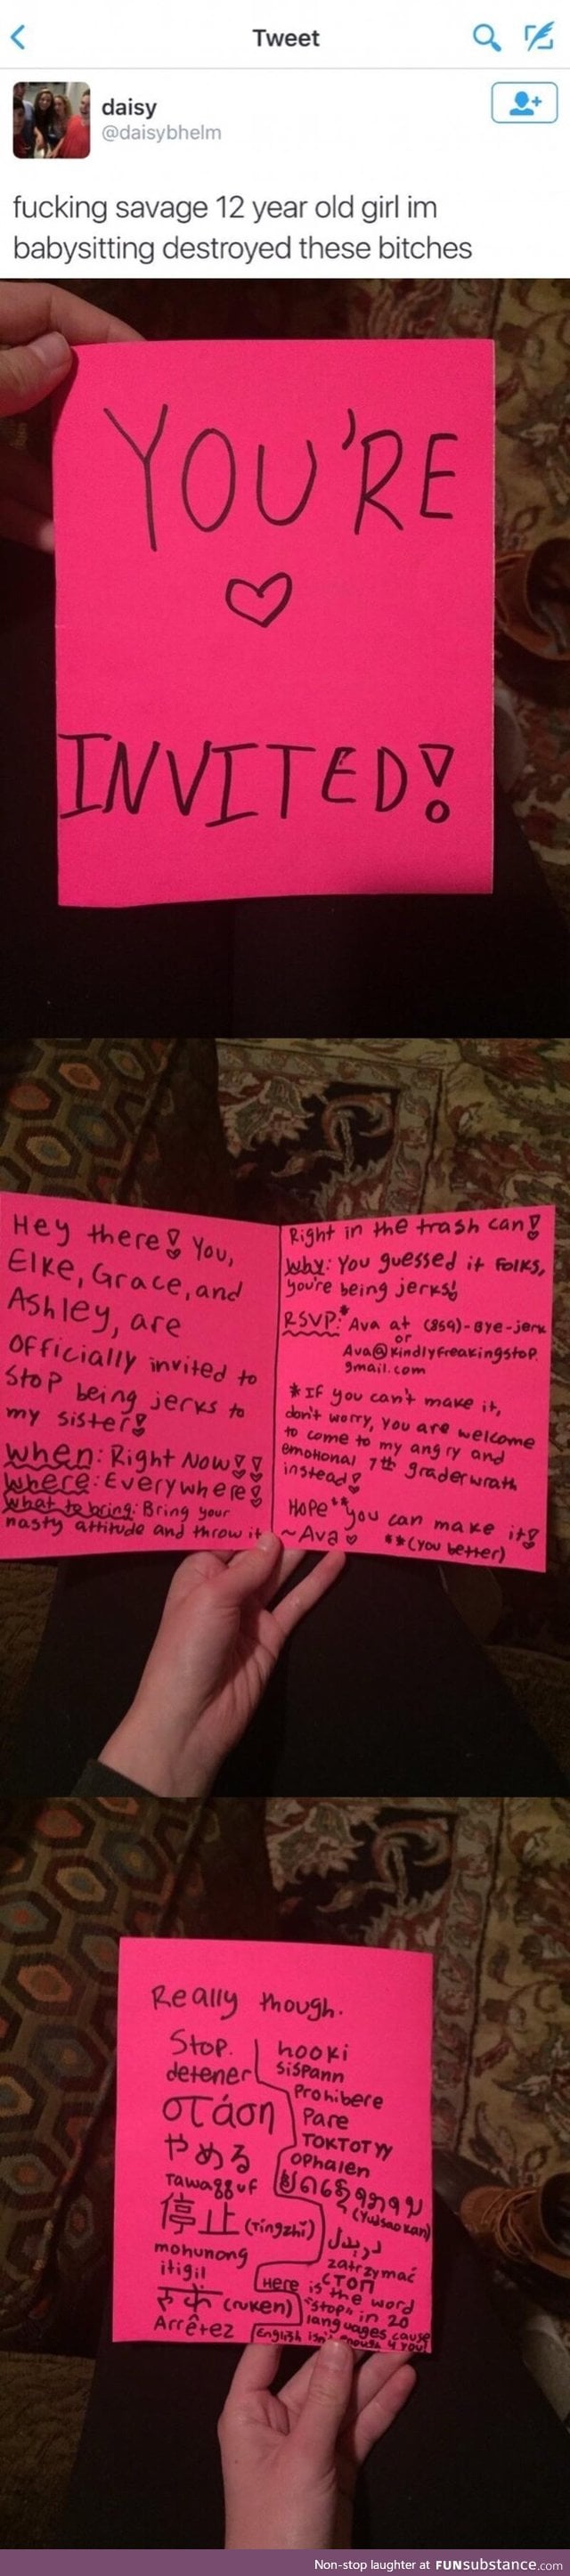 Tweet
daisy
@daisybhelm
fucking savage 12 year old girl im
babysitting destroyed these bitches
YOU'RE
INVITED!
Hey there! You,
Elke, Grace, and
Ashley, are
officially invited to
stop being jerks to
my sister!
When: Right Now!!
Where: Everywhere!
What to bring: Bring your
nasty attitude and throw it
Right in the trash can!
Why: You guessed it folks,
you're being jerks!
RSVP:* Ava at (859)-Bye-jerk
or
Ava@kindlyfreakingstop.
gmail.com
*If you can't make it,
don't worry, you are welcome
to come to my angry and
emotional 7th grader wrath
instead!
Hope** you can make it!
~Ava **(you better)
Really though.
Stop.
detener
στάση
やめる
Tawaqquf
停止 (Tíngzhǐ)
mohunong
itigil
(ruken)
Arrêtez
hooki
Sispann
Prohibere
Pare
TOKTOTYY
ophalen
(Yudsaokan)
zatrzymać
СТОП
Here is the word
"stop" in 20
languages cause
English isn't enough 4 you!
Non-stop laughter at FUNsubstance.com